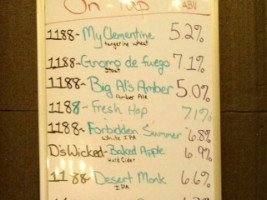 On Tap ABV
1188- My Clementine 5.2%
tangerine wheat
1188- Gnomo de fuego 7.1%
1188- Big Al's Amber 5.0%
Amber Ale
1188- Fresh Hop 7.1%
1188- Forbidden Summer 6.8%
White IPA
D's Wicked- Baked Apple 6.9%
Hard Cider
1188- Desert Monk 6.6%
IPA